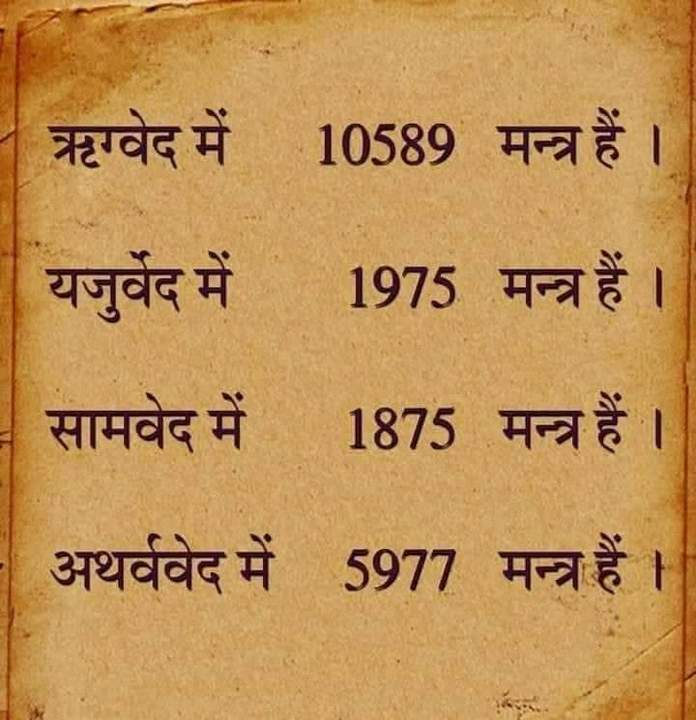 ऋग्वेद में 10589 मन्त्र हैं ।
यजुर्वेद में 1975 मन्त्र हैं ।
सामवेद में 1875 मन्त्र हैं ।
अथर्ववेद में 5977 मन्त्र हैं ।